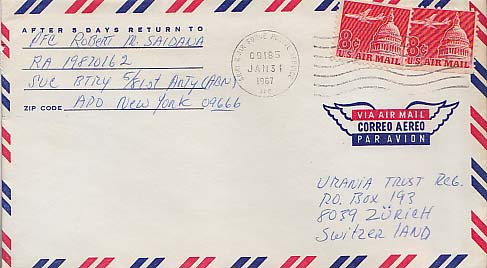 AFTER 5 DAYS RETURN TO
PFC Robert M. SAIDANA
RA 19870162
SVC BTRY 5/81st Arty (ABN)
APO New York 09666
ZIP CODE
09185
JAN 31
1967
8c
U.S. AIR MAIL
8c
U.S. AIR MAIL
VIA AIR MAIL
CORREO AEREO
PAR AVION
URANIA TRUST REG.
P.O. Box 193
8039 ZÜRICH
Switzer LAND